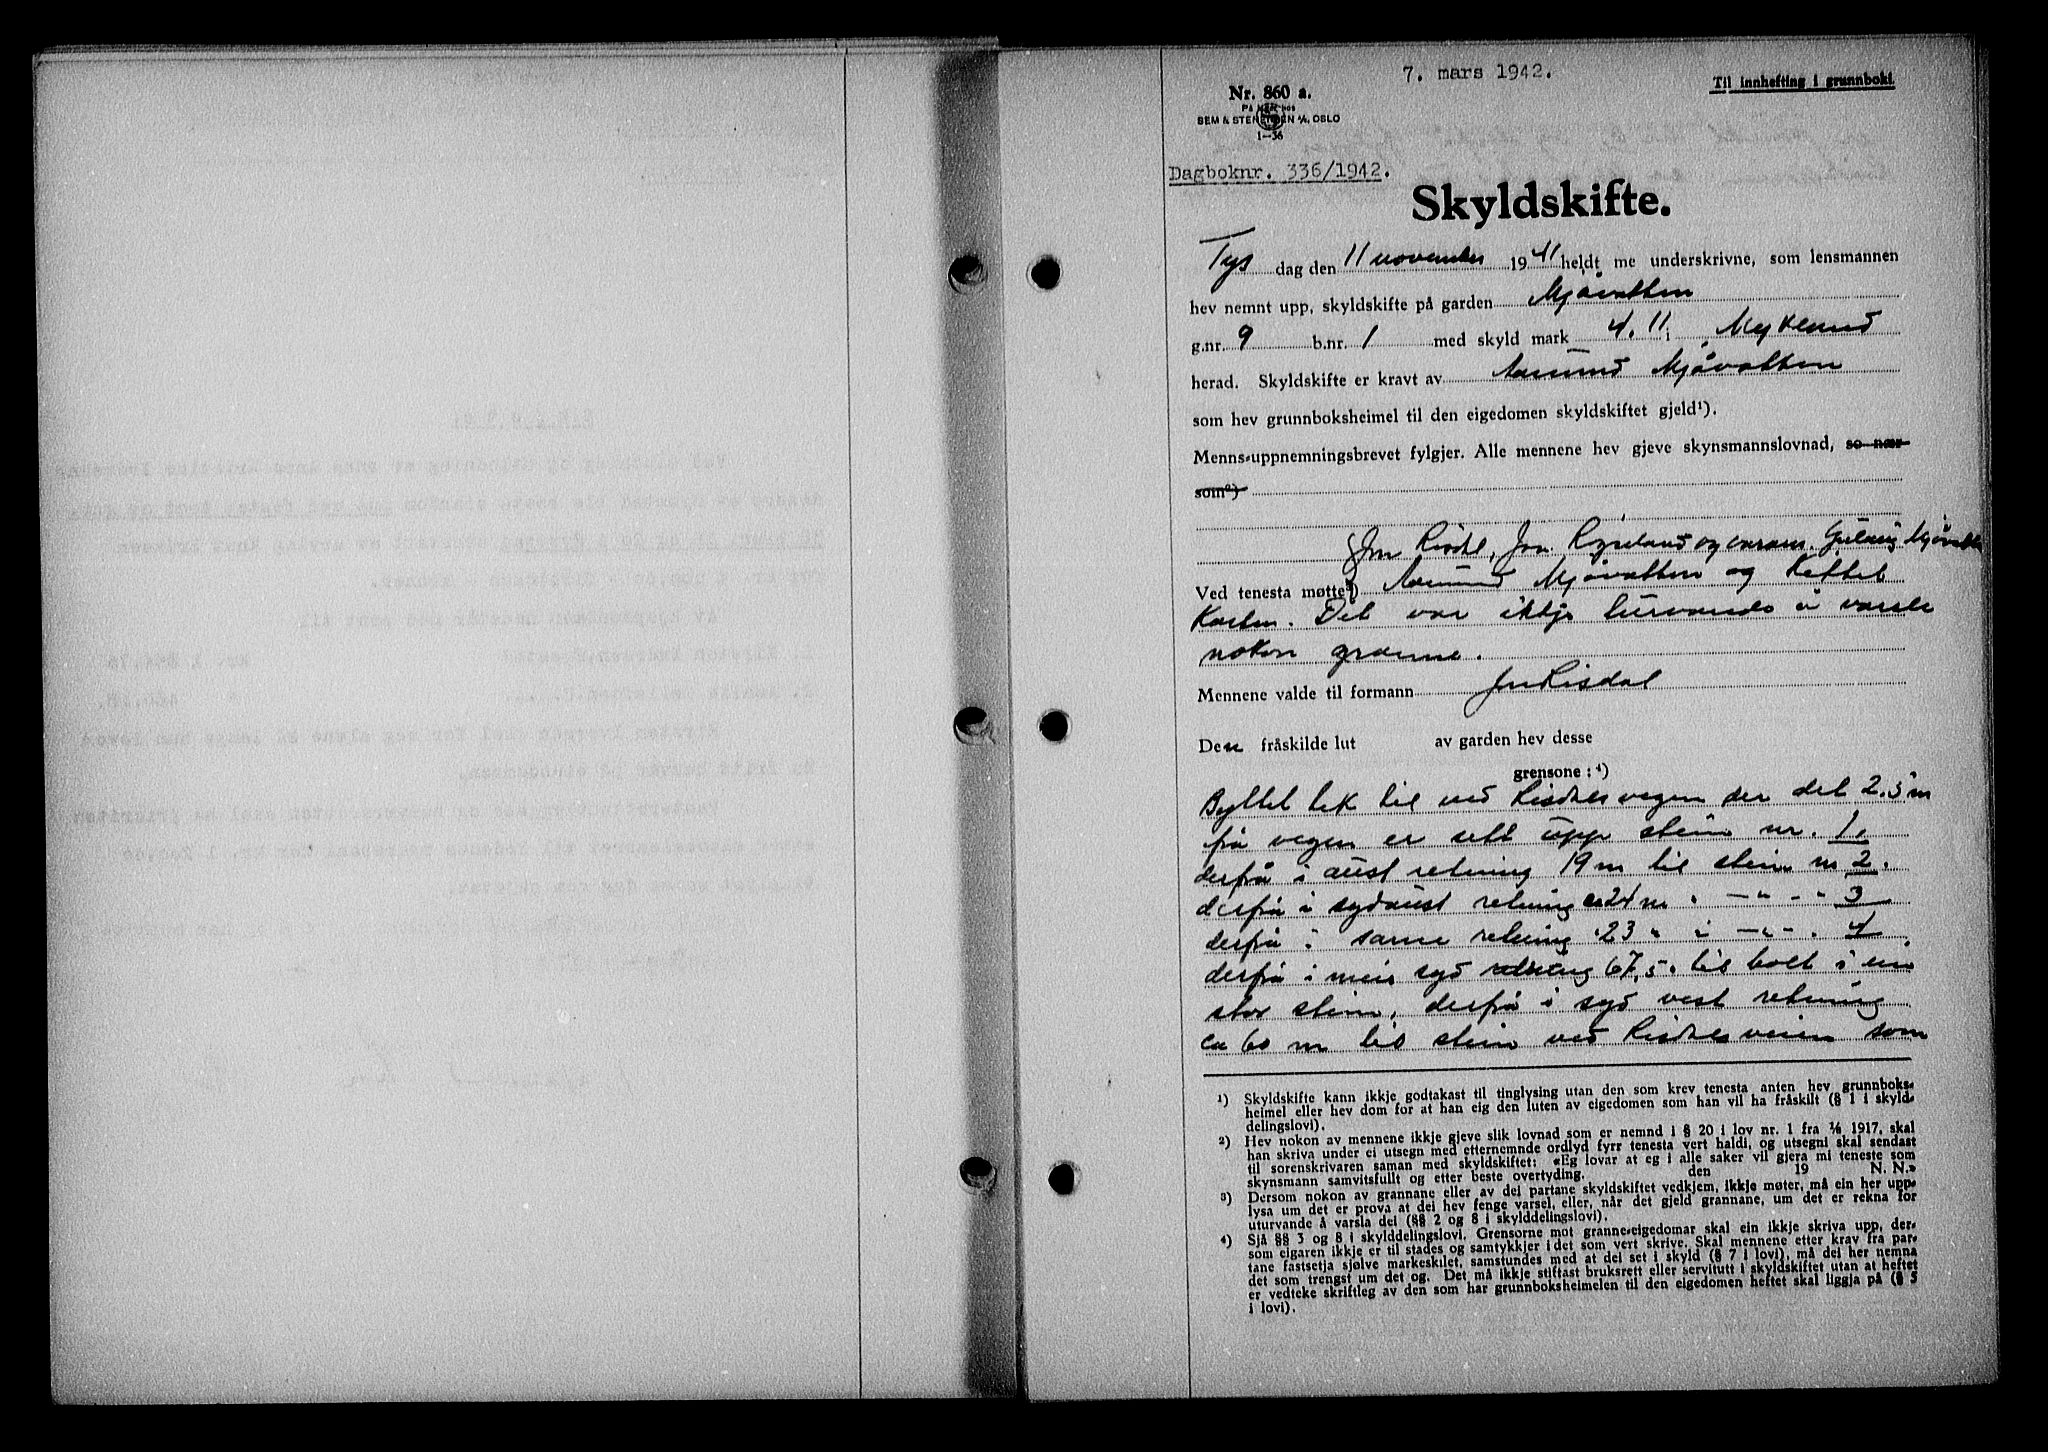 7. mars 1942.
Til innhefting i grunnboki
Nr. 860 a.
På lager hos
SEM & STENERSEN A/S, OSLO
1—36
Dagboknr. 336/1942.
Skyldskifte.
Tys dag den 11 november 1941 heldt me underskrivne, som lensmannen
hev nemnt upp, skyldskifte på garden Mjåvatten
g.nr. 9 b.nr. 1 med skyld mark 4.11 i Mykland
herad. Skyldskifte er kravt av Aamund Mjåvatten
som hev grunnboksheimel til den eigedomen skyldskiftet gjeld¹).
Menns-uppnemningsbrevet fylgjer. Alle mennene hev gjeve skynsmannslovnad, so nær
som²)
Jon Risdal, Jon og varam. Mjåvatten
Ved tenesta møtte³) Aamund Mjåvatten og Kettel
Det var ikkje turvande å varsle
nokon granne.
Mennene valde til formann Jon Risdal
Den fråskilde lut av garden hev desse
grensone: ⁴)
Byttet tek til ved Risdalsvegen der det 2.5 m
frå vegen er sett upp stein nr. 1.
derfrå i aust retning 19 m til stein nr 2.
derfrå i sydaust retning ca 24 m " — " - " 3
derfrå i same retning 23 " " — " - . 4
derfrå i meir syd retning 67,5 . til bolt i ein
stor stein, derfrå i syd vest retning
ca 60 m til stein ved Risdalsveien som
¹) Skyldskifte kann ikkje godtakast til tinglysing utan den som krev tenesta anten hev grunnboks-
heimel eller hev dom for at han eig den luten av eigedomen som han vil ha fråskilt (§ 1 i skyld-
delingslovi).
²) Hev nokon av mennene ikkje gjeve slik lovnad som er nemnd i § 20 i lov nr. 1 fra 1917, skal
han skriva under ei utsegn med etternemnde ordlyd fyrr tenesta vert haldi, og utsegni skal sendast
til sorenskrivaren saman med skyldskiftet: «Eg lovar at eg i alle saker vil gjera mi teneste som
skynsmann samvitsfullt og etter beste overtyding. den 19 N. N.»
³) Dersom nokon av grannane eller av dei partane skyldskiftet vedkjem, ikkje møter, må ein her upp-
lysa um det er prova at dei hev fenge varsel, eller, når det gjeld grannane, um det er rekna for
uturvande å varsla dei (§§ 2 og 8 i skylddelingslovi).
⁴) Sjå §§ 3 og 8 i skylddelingslovi. Grensorne mot granne-eigedomar skal ein ikkje skriva upp, der-
som eigaren ikkje er til stades og samtykkjer i det som vert skrive. Skal mennene etter krav fra par-
tane fastsetja sjølve markeskilet, samstundes med at dei set i skyld (§ 7 i lovi), må dei her nemna
det som trengst um det og. Det må ikkje stiftast bruksrett eller servitutt i skyldskiftet utan at heftet
er vedteke skriftleg av den som har grunnboksheimelen til den eigedomen heftet skal liggja på (§ 5
i lovi).